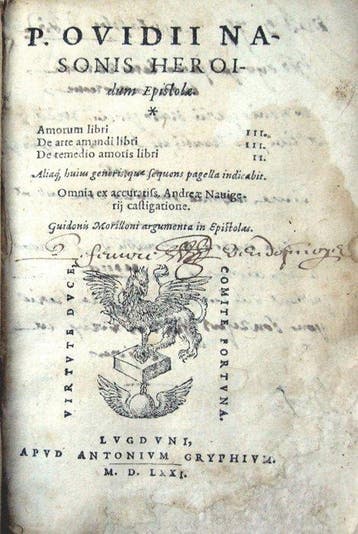 P. OVIDII NA-
SONIS HEROI-
dum Epistolæ.
*
Amorum libri III.
De arte amandi libri III.
De remedio amoris libri II.
Aliaq́, huius generis, quæ sequens pagella indicabit.
Omnia ex accuratiss. Andreæ Nauige-
rij castigatione.
Guidonis Morilloni argumenta in Epistolas.
VIRTVTE DVCE,
COMITE FORTVNA.
LVGDVNI,
APVD ANTONIVM GRYPHIVM.
M. D. LXXI.